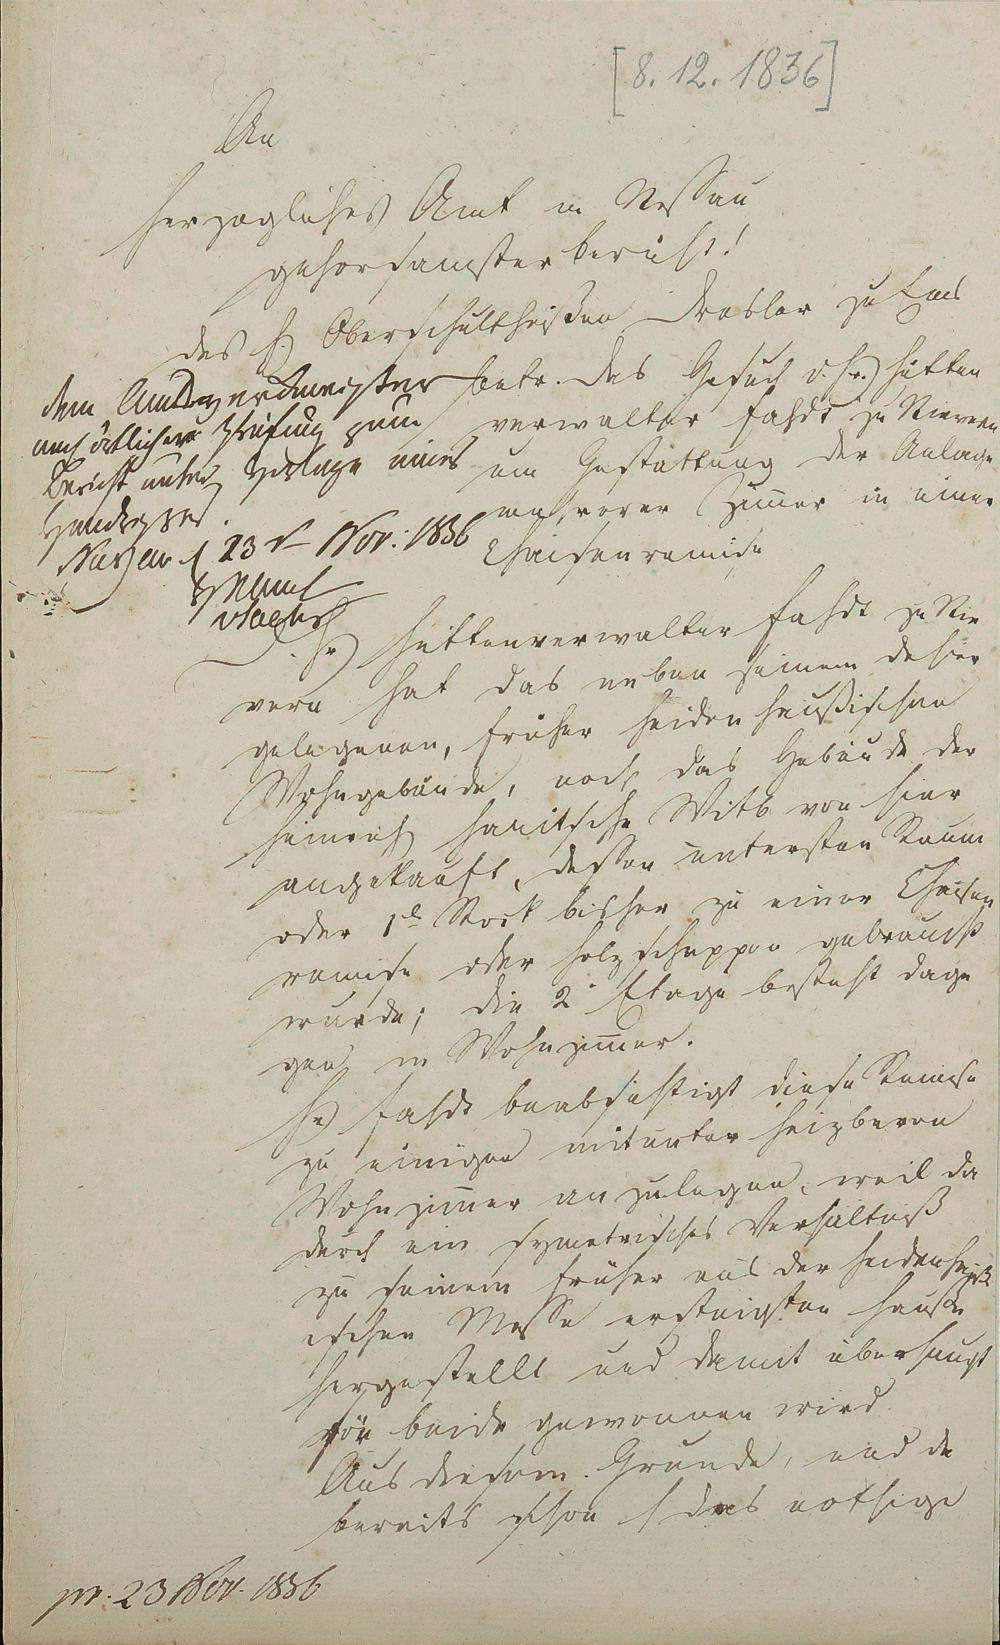 [8. 12. 1836]
An
Herzogliches Amt in Nassau
gehorsamster Bericht!
des H. Oberschultheisen zu Ems
betr. das Gesuch d. Hr. Hütten
verwalter Fahdt zu Nievern
um Gestattung der Anlage
mehrerer Zimer in einer
Chaisenremise
dem Amtswerkmeister
nach örtlicher Prüfung zum
Bericht unter Vorlage eines
Handrisses.
Nassau d 23t Nov. 1836
H. Amt
D. Hr Hüttenverwalter Fahdt zu Nie
vern hat das neben seinem dahier
gelegenen, früher Heidenhaußischen
Wohngebäude, noch das Gebäude der
Heinrich Wtb von hier
angekauft, dessen untersten Raum
oder 1t Stock bisher zu einer Chaisen
remise oder Holzschuppen gebraucht
wurde; die 2e Etage besteht dage
gen in Wohnzimer.
Hr Fahdt beabsichtigt diese Remise
zu einigen mitunter heizbaren
Wohnzimer anzulegen, weil da
durch ein symetrisches Verhältniß
zu seinem früher aus der Heidenhauß
ischen Masse ersteigten Hauße
hergestellt und damit überhaupt
für beide gewonnen wird.
Aus diesem Grunde, und da
bereits schon das nöthige
pr. 23 Nov. 1836